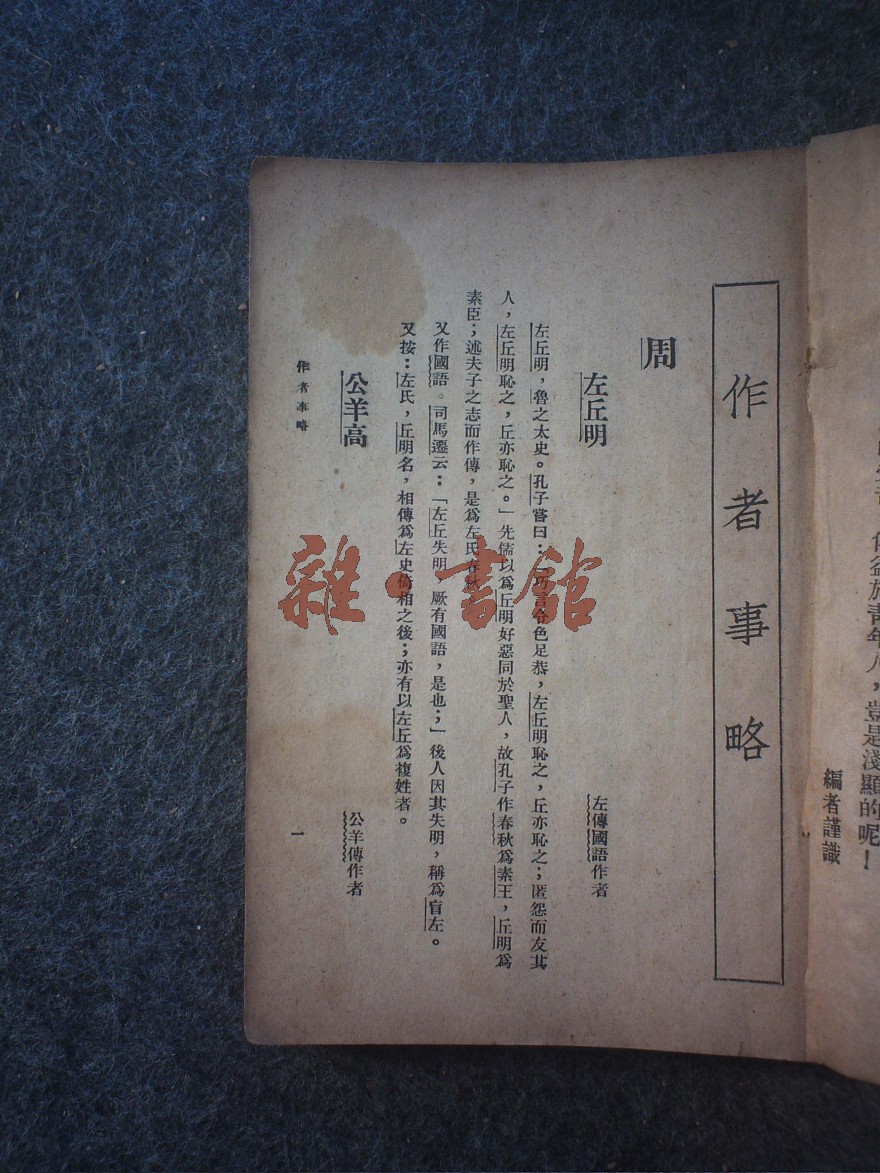 豈是淺顯的呢！
編者謹識
作者事略
周
左丘明
左傳國語作者
左丘明，魯之太史。孔子嘗曰：「巧言令色足恭，左丘明恥之，丘亦恥之；匿怨而友其
人，左丘明恥之，丘亦恥之。」先儒以爲丘明好惡同於聖人，故孔子作春秋爲素王，丘明爲
素臣；述夫子之志而作傳，是爲左氏春秋
又作國語。司馬遷云：「左丘失明 厥有國語，是也；」後人因其失明，稱爲盲左。
又按：左氏，丘明名，相傳爲左史倚相之後；亦有以左丘爲複姓者。
公羊高
公羊傳作者
作者事略
一
雜·書館